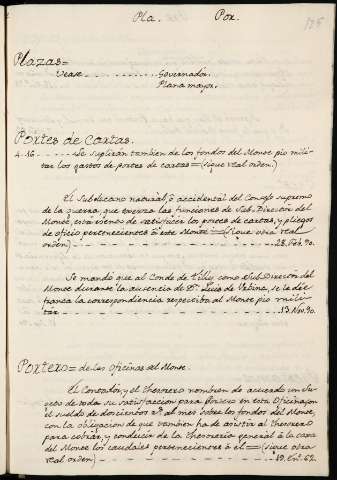 Pla. Por. 175
Plazas=
Vease . . . . . . . . . . . Governador.
Plana mayor.
Portes de Cartas.
4.16. - - - - - Se suplirán tambien de los fondos del Monte pio mili-
tar los gastos de portes de cartas = (sigue real orden.)
El Subdecano natural, ó accidental del Consejo supremo
de la guerra, que exerza las funciones de Sub-Director del
Monte, está esento de satisfacer los portes de cartas, y pliegos
de oficio pertenecientes á este Monte = (sigue otra real
orden) - - - - - 28. Feb. 90.
Se mandó que al Conde de Tilly como Sub-Director del
Monte durante la ausencia de Dn. Luis de Urbina, se le die-
franca la correspondiencia respectiba al Monte pio mili-
tar - - - - - 13. Nov. 90.
Portero = de las Oficinas del Monte.
El Contador, y el thesorero nombren de acuerdo un Su-
geto de toda su satisfaccion para Portero en esta Oficina, con
el sueldo de doscientos rs. al mes sobre los fondos del Monte,
con la obligacion de que tambien ha de asistir al thesorero
para cobrar, y conducir de la thesoreria general á la casa
del Monte los caudales pertenecientes á el = (sigue otra
real orden) - - - - - 19. En. 62.